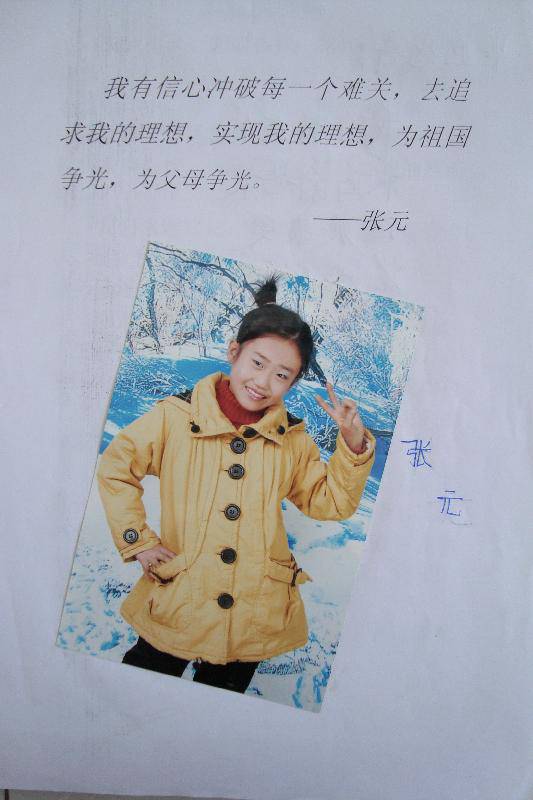 我有信心冲破每一个难关，去追
求我的理想，实现我的理想，为祖国
争光，为父母争光。
——张元
张
元